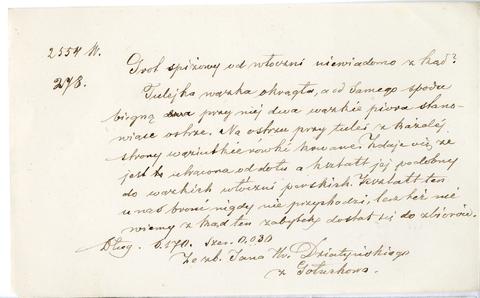 2554 W.
278.
Grot spiżowy od włóczni niewiadomo z kąd?
Tulejka wązka okrągła, a od samego spodu
biegną dwa przy niej dwa wązkie pióra stano-
wiące ostrze. Na ostrzu przy tulei z każdej
strony waziutkie rowki kowane. Zdaje się, że
jest to utrącona od dołu a kształt jej podobny
do wazkich włóczni perskich. Kształt ten
u nas broni nigdy nie przychodzi, lecz też nie
wiemy z kąd ten zabytek dostał się do zbiorów.
Dług. 0.170. Szer. 0,030
Ze zb. Jana W. Działyńskiego
z Gołuchowa.